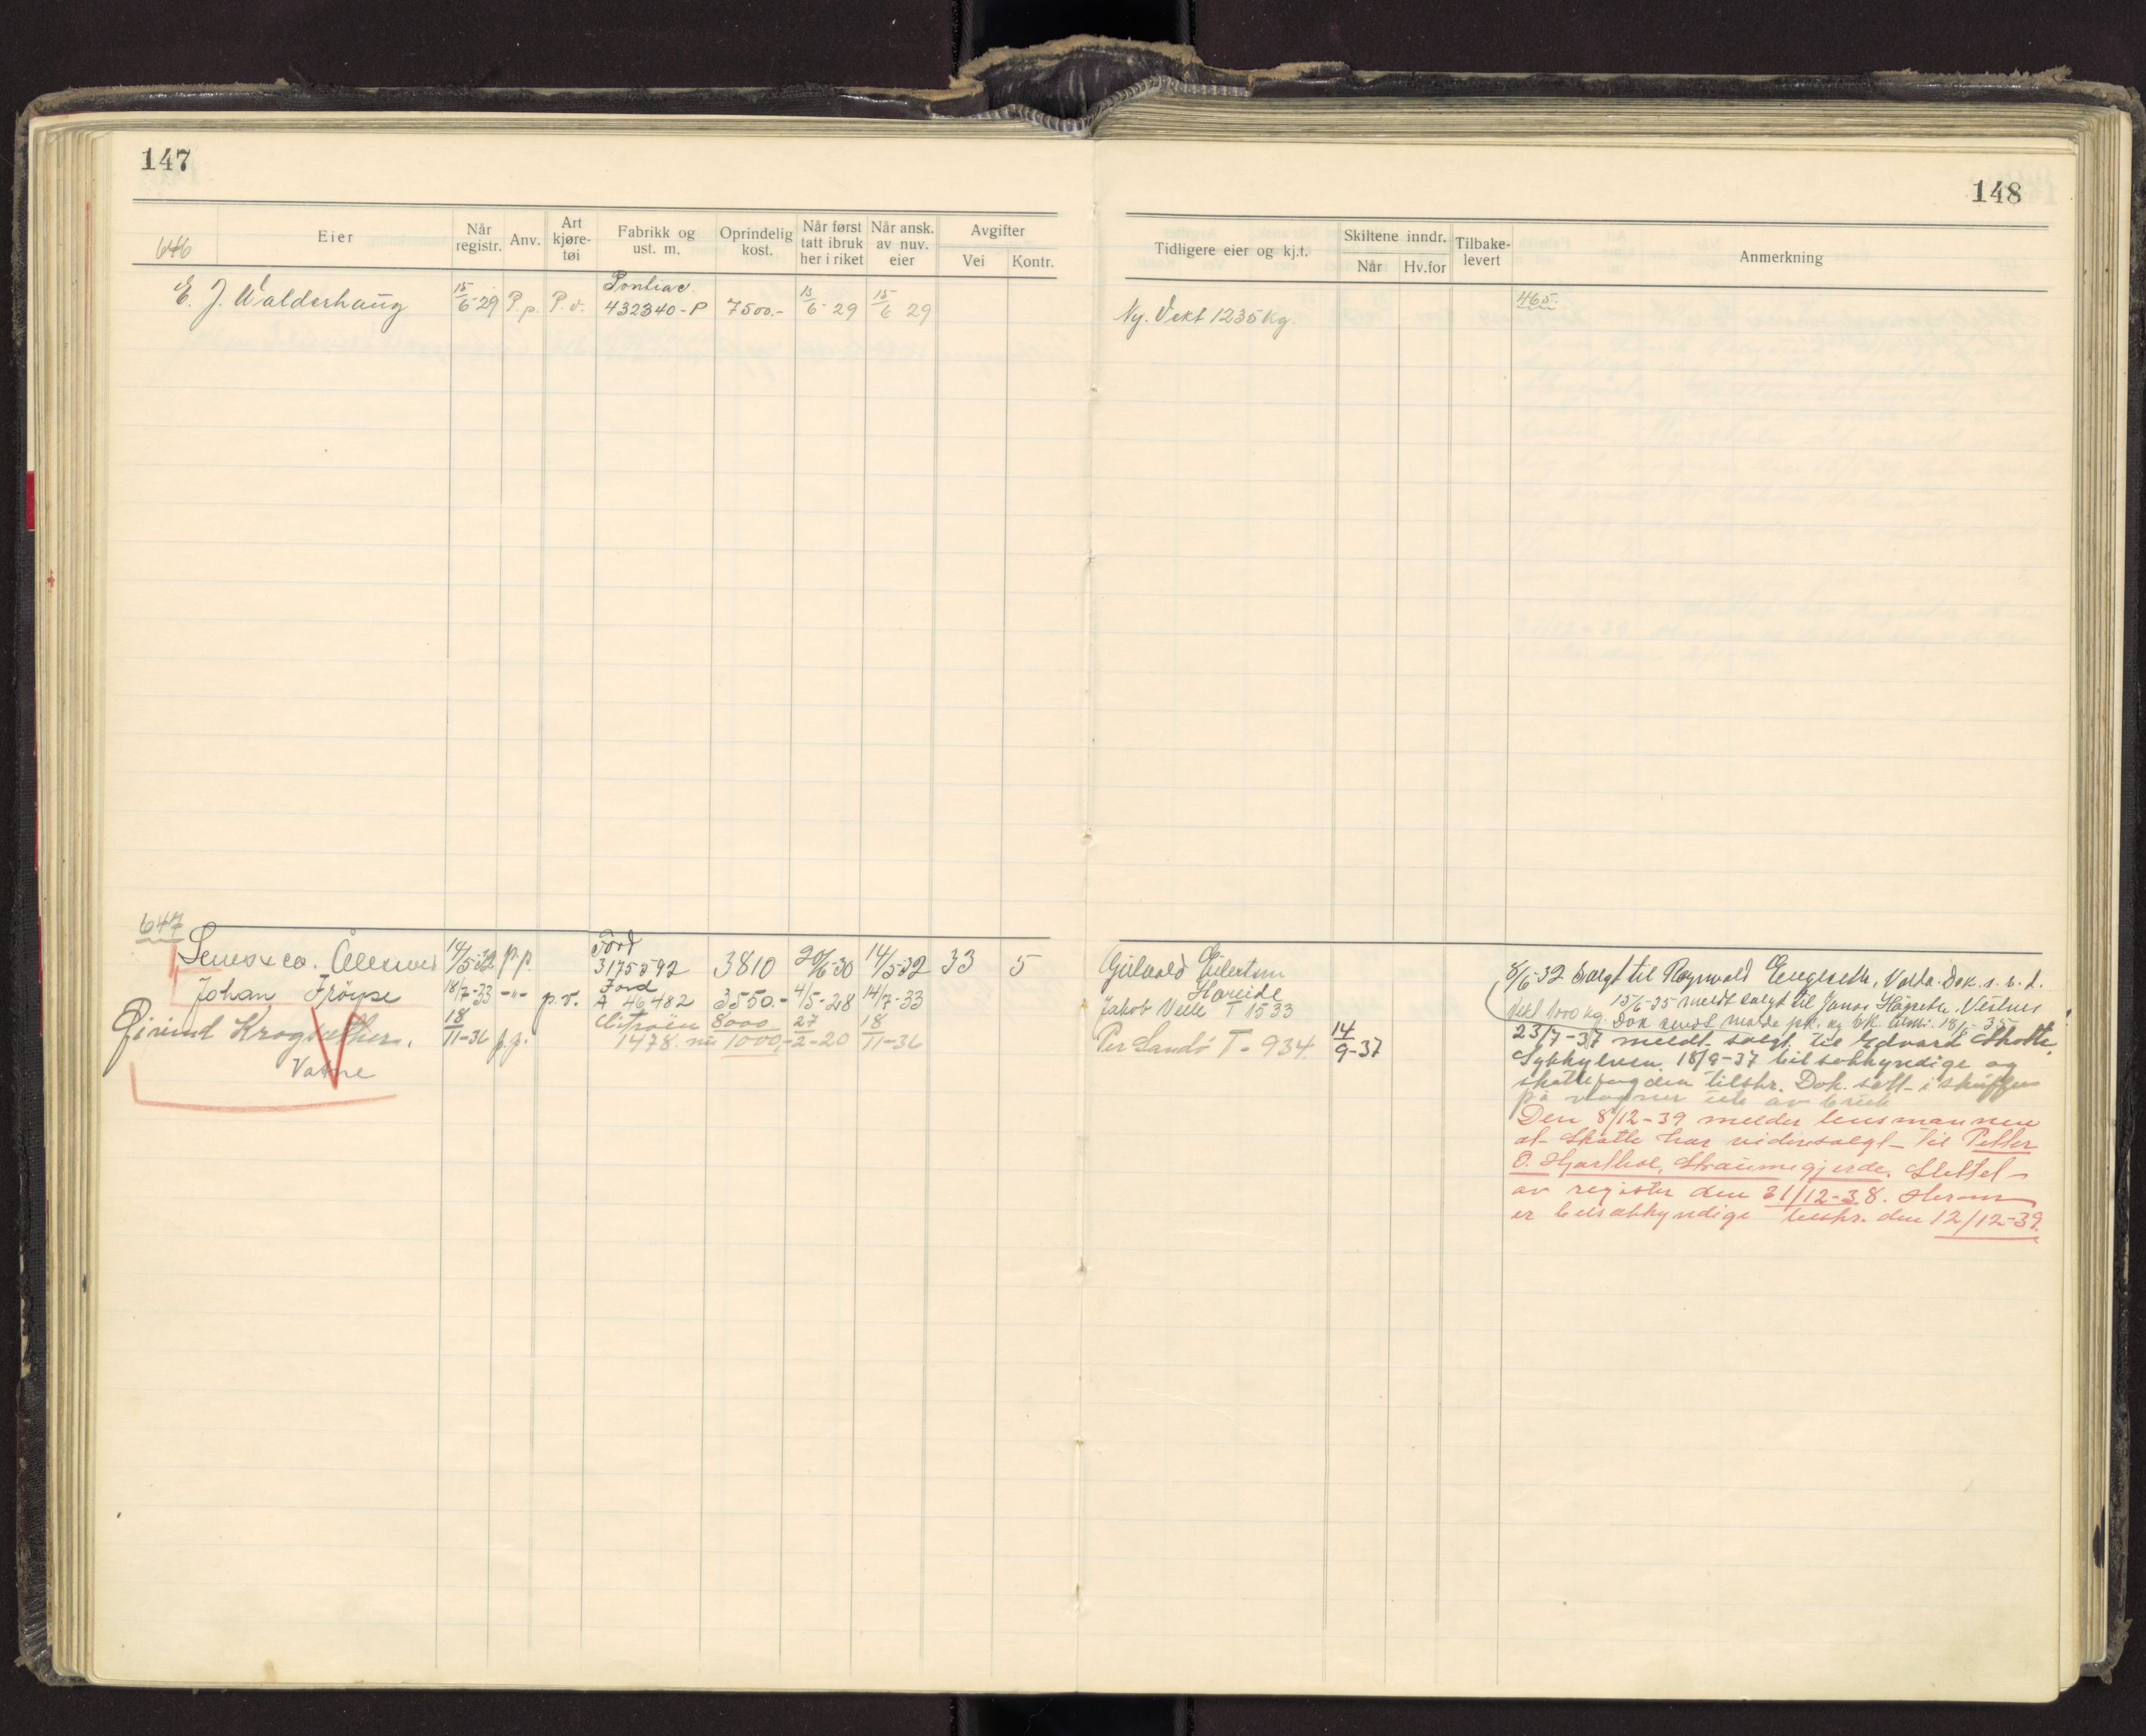 147
148
646
Eier
Når registr.
Anv.
Art kjøre-tøi
Fabrikk og ust. m.
Oprindelig kost.
Når først tatt ibruk her i riket
Når ansk. av nuv. eier
Avgifter
Vei
Kontr.
Tidligere eier og kj.t.
Skiltene inndr.
Når
Hv.for
Tilbake-levert
Anmerkning
Pontiac.
E. J. Walderhaug 15/6-29 P.p. P.v. 432340-P 7500.- 15/6-29 15/6 29
Ny. Vekt 1235 kg.
465.
647
Ford
14/5-32 p.p. 3175592 3810 20/6-30 14/5-32 33 5
Eilertsen
Hareide
8/6-32 Solgt til Engeseth, Volda. Dok. s. s. d.
Ford
Johan 18/7-33 -"- p.v. A 46482 3550.- 4/5-28 14/7-33
Jakob Velle T 1533
Vekt 1000 kg. 15/6-35 meldt solgt til Jonas
Dok sendt Molde pk. 18/6-35
Citroën 8000 27
Eivind 18/11-36 p.p. 1478. nu 1000,- 2-20 18/11-36
Vatne
Per Sandø T-934. 14/9-37
23/7-37 meldt solgt til Edvard Skotte
Sykkylven. 18/9-37 bilsakkyndige og
skattefogden tilskr. Dok. satt i skuffen
på vognen ute av bruk
Den 8/12-39 melder lensmannen
at Skotte har videresolgt til Petter
O. Hjorthol, Straumgjerde. Slettet
av register den 31/12-38. Herom
er bilsakkyndige tilskr. den 12/12-39.